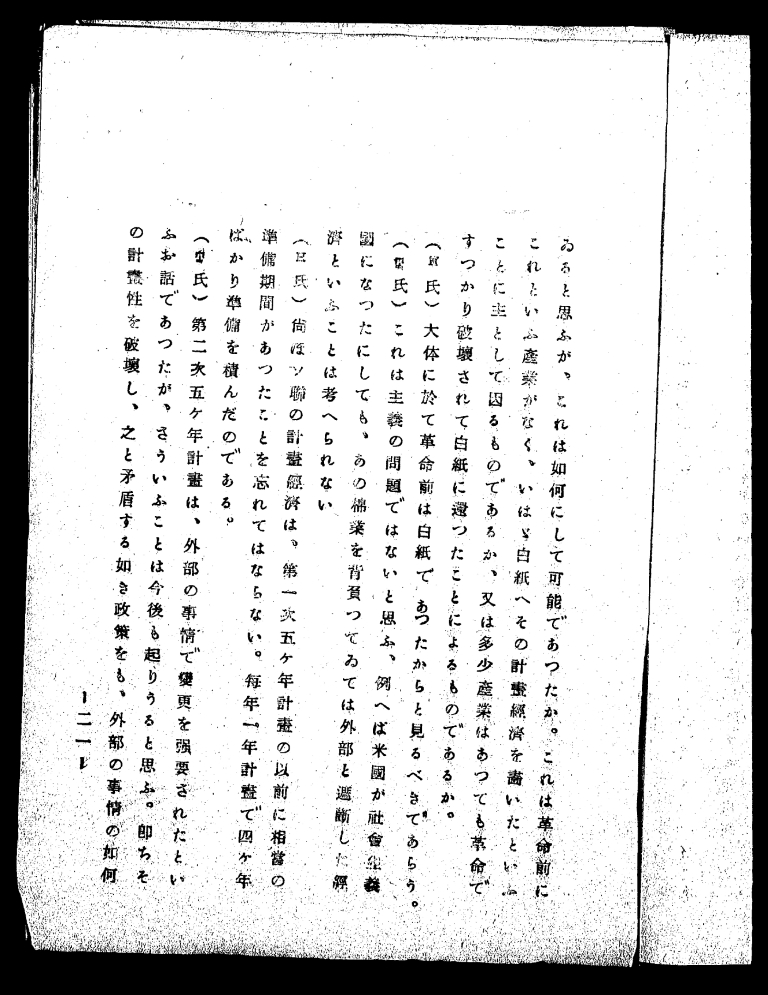 ゐると思ふが、これは如何にして可能であつたか。これは革命前に
これといふ産業がなく、いはゞ白紙へその計畫經濟を書いたといふ
ことに主として因るものであるか、又は多少産業はあつても革命で
すつかり破壊されて白紙に還つたことによるものであるか。
(氏)大体に於て革命前は白紙であつたからと見るべきであらう。
(氏)これは主義の問題ではないと思ふ、例へば米國が社會主義
國になつたにしても、あの棉業を背負つてゐては外部と遮斷した經
濟といふことは考へられない
(氏)尚ほソ聯の計畫經濟は、第一次五ヶ年計畫の以前に相當の
準備期間があつたことを忘れてはならない。毎年一年計畫で四ヶ年
ばかり準備を積んだのである。
(氏)第二次五ヶ年計畫は、外部の事情で變更を强要されたとい
ふお話であつたが、さういふことは今後も起りうると思ふ。卽ちそ
の計畫性を破壞し、之と矛盾する如き政策をも、外部の事情の如何
ー二一ー